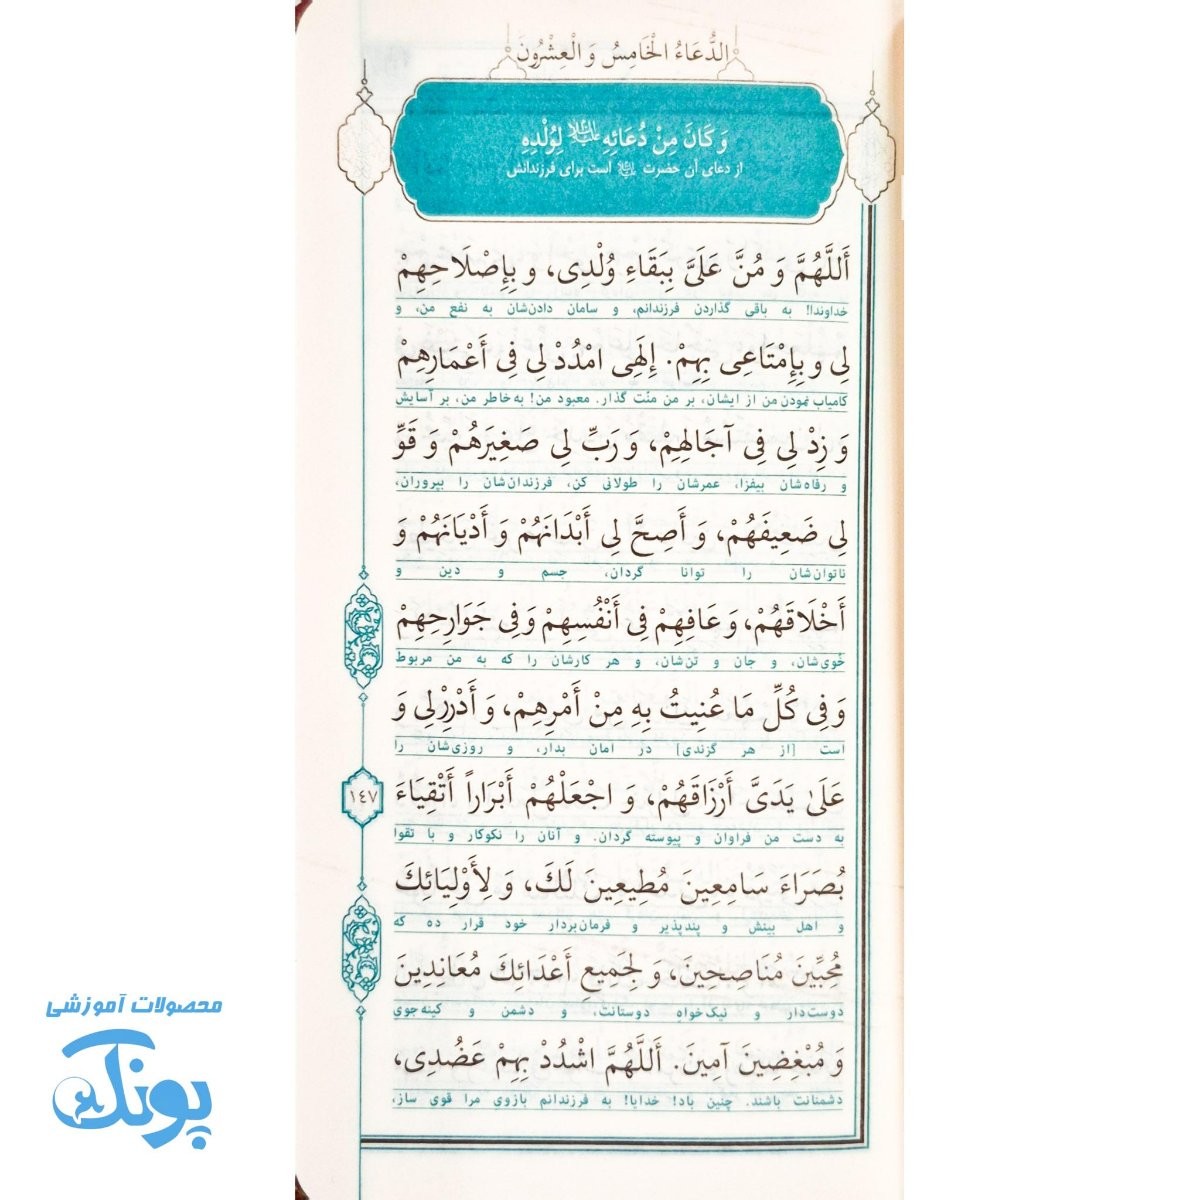 الدُّعَاءُ الْخَامِسُ وَ الْعِشْرُونَ
وَ كَانَ مِنْ دُعَائِهِ عليه السلام لِوُلْدِهِ
از دعای آن حضرت علیه السلام است برای فرزندانش
أَللَّهُمَّ وَ مُنَّ عَلَىَّ بِبَقَاءِ وُلْدِى، وَ بِإِصْلَاحِهِمْ
خداوندا! به باقی گذاردن فرزندانم، و سامان دادن‌شان به نفع من، و
لِى وَ بِإِمْتَاعِى بِهِمْ. إِلَهِى امْدُدْ لِى فِى أَعْمَارِهِمْ
کامیاب نمودن من از ایشان، بر من منّت گذار. معبود من! به خاطر من، بر آسایش
وَ زِدْ لِى فِى آجَالِهِمْ، وَ رَبِّ لِى صَغِيرَهُمْ وَ قَوِّ
و رفاه‌شان بیفزا، عمرشان را طولانی کن، فرزندان‌شان را بپروران،
لِى ضَعِيفَهُمْ، وَ أَصِحَّ لِى أَبْدَانَهُمْ وَ أَدْيَانَهُمْ وَ
ناتوان‌شان را توانا گردان، جسم و دین و
أَخْلَاقَهُمْ، وَ عَافِهِمْ فِى أَنْفُسِهِمْ وَ فِى جَوَارِحِهِمْ
خُوی‌شان، و جان و تن‌شان، و هر کارشان را که به من مربوط
وَ فِى كُلِّ مَا عُنِيتُ بِهِ مِنْ أَمْرِهِمْ، وَ أَدْرِرْ لِى وَ
است [از هر گزندی] در امان بدار، و روزی‌شان را
عَلَىٰ يَدَىَّ أَرْزَاقَهُمْ، وَ اجْعَلْهُمْ أَبْرَاراً أَتْقِيَاءَ
١٤٧
به دست من فراوان و پیوسته گردان. و آنان را نکوکار و با تقوا
بُصَرَاءَ سَامِعِينَ مُطِيعِينَ لَكَ، وَ لِأَوْلِيَائِكَ
و اهل بینش و پندپذیر و فرمان‌بردار خود قرار ده که
مُحِبِّينَ مُنَاصِحِينَ، وَ لِجَمِيعِ أَعْدَائِكَ مُعَانِدِينَ
دوست‌دار و نیک‌خواهِ دوستانت، و دشمن و کینه‌جوی
وَ مُبْغِضِينَ آمِينَ. أَللَّهُمَّ اشْدُدْ بِهِمْ عَضُدِى،
دشمنانت باشند. چنین باد! خدایا! به فرزندانم بازوی مرا قوی ساز،
محصولات آموزشی
پونک